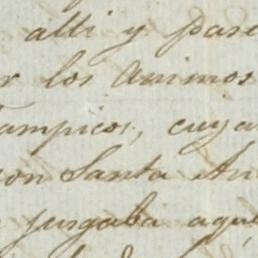 alli y pase
r los animos
Tampicos, cuya
con Santa An
jusgaba aqu